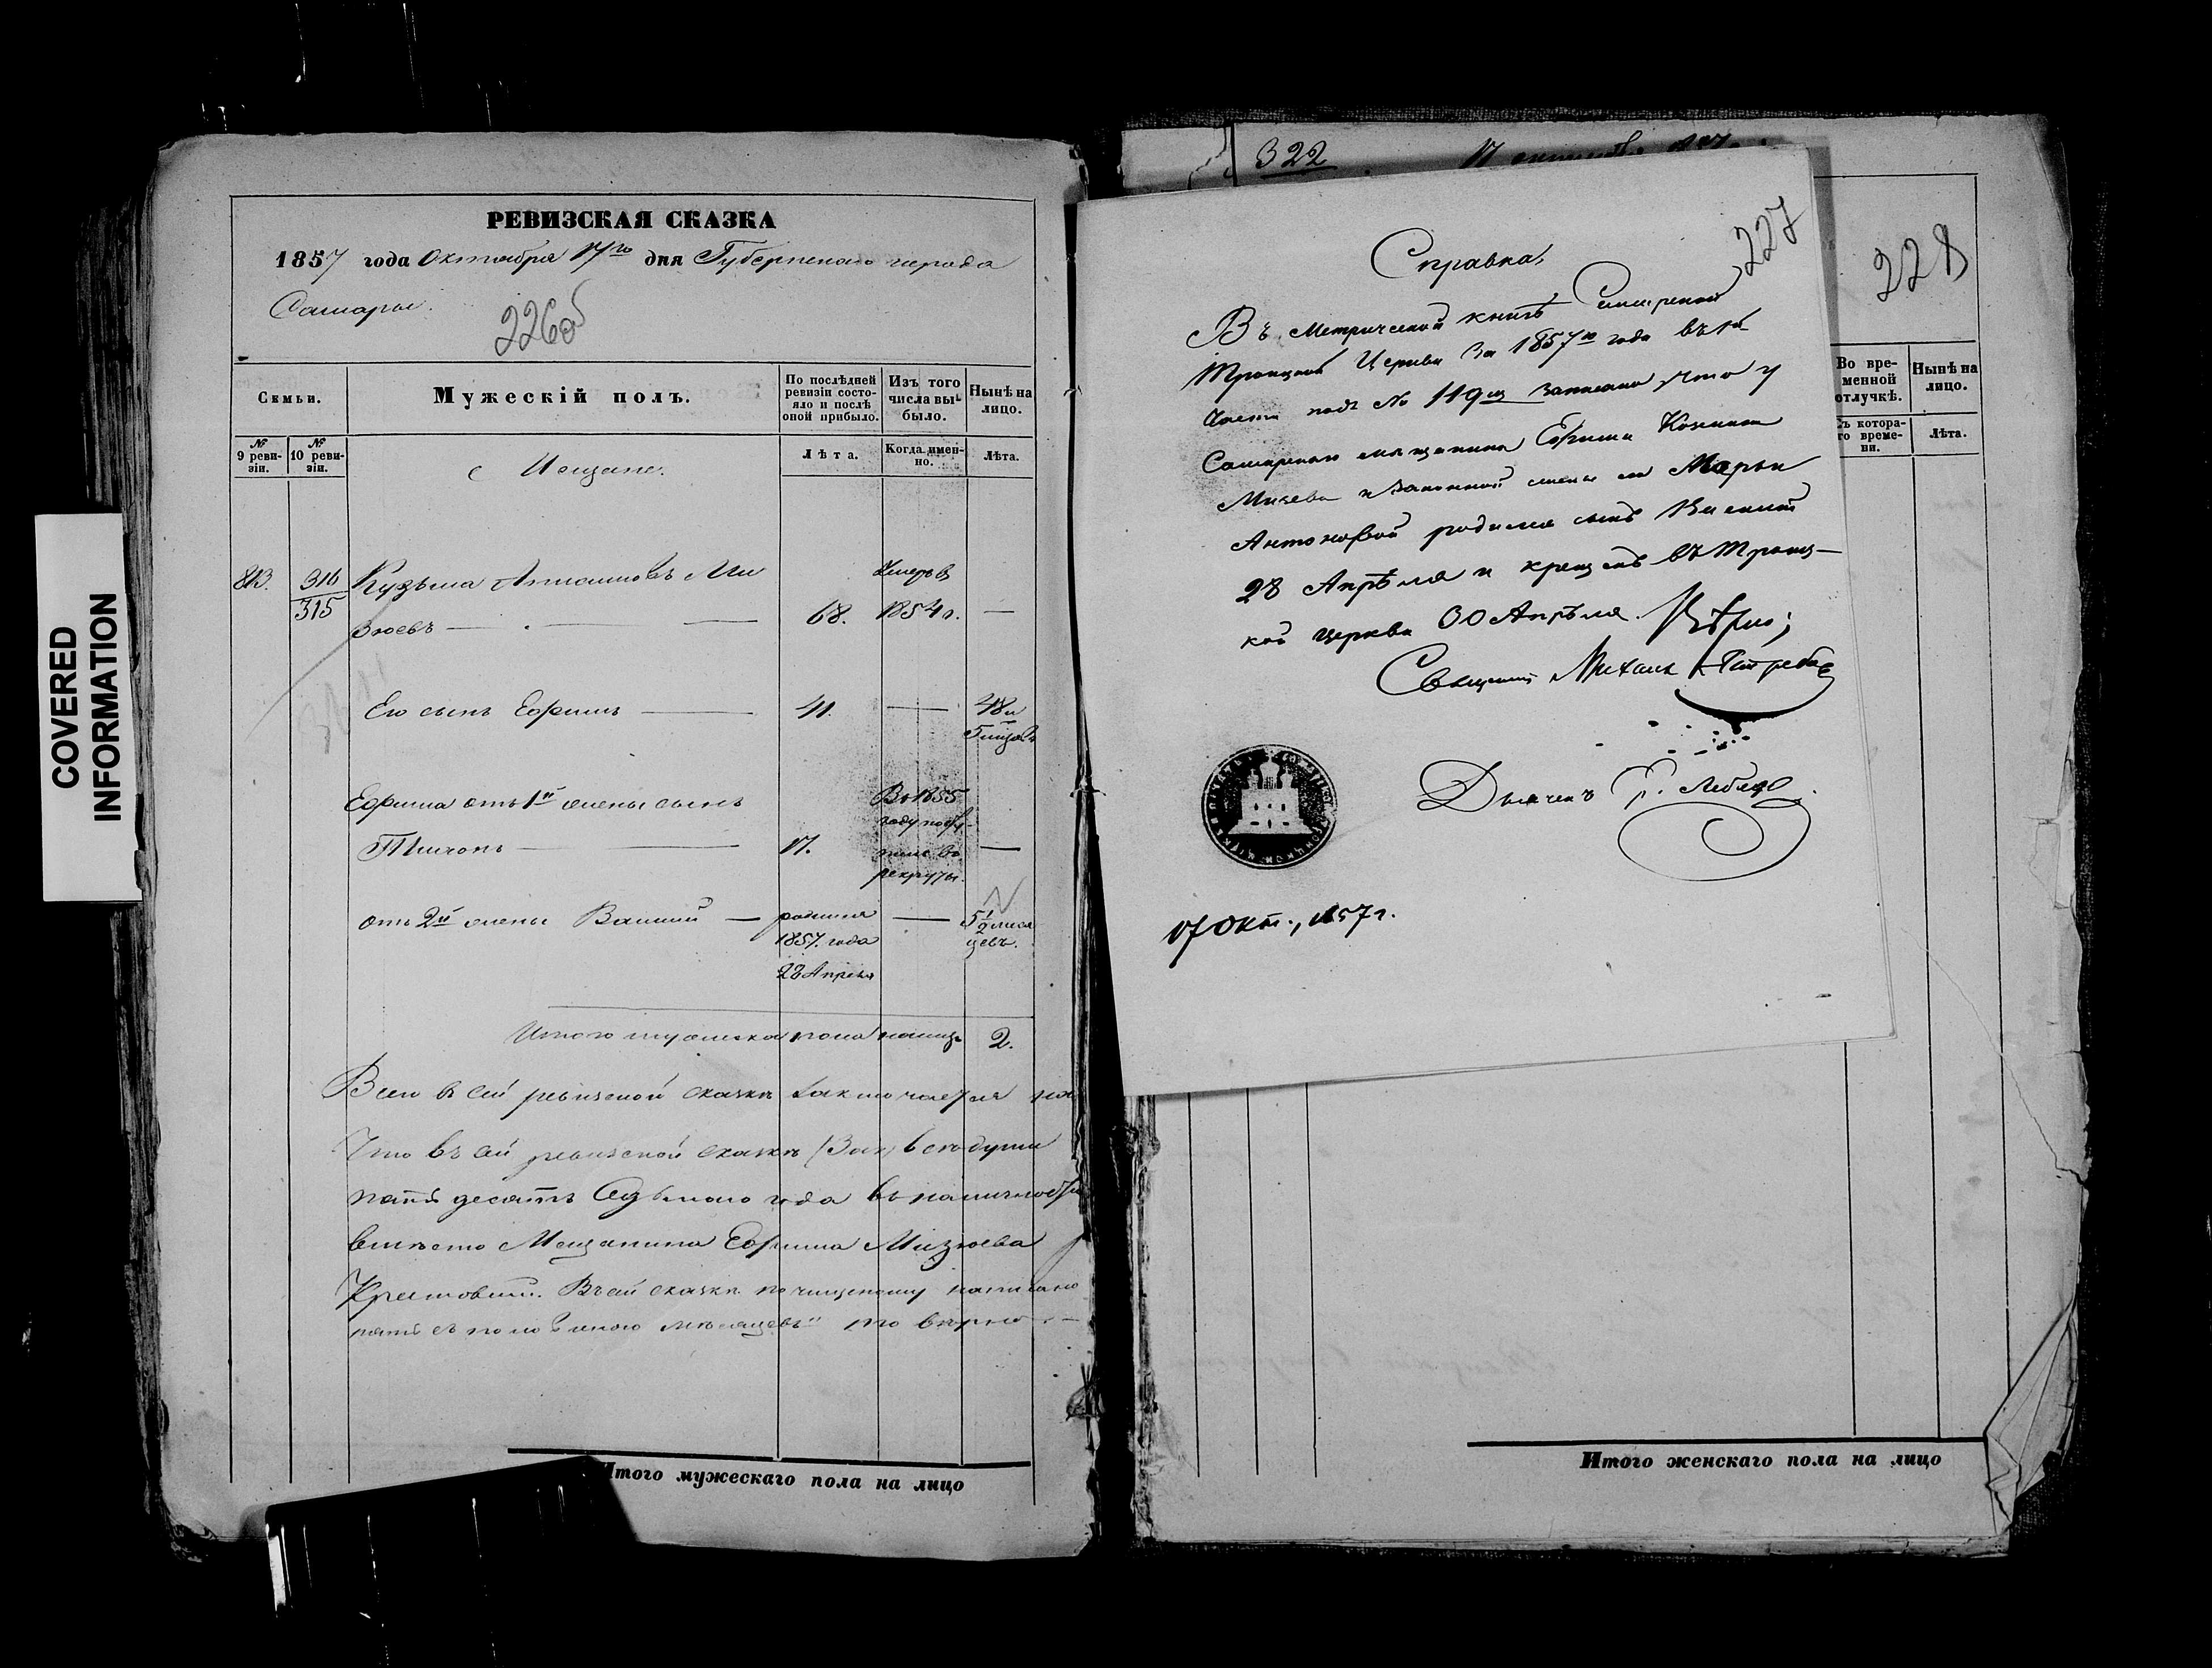 COVERED
INFORMATION
РЕВИЗСКАЯ СКАЗКА
1857 года Октября 17го дня Губернскаго города
Самары.
226об
Семьи.
Мужескій полъ.
По послѣдней ревизіи состояло и послѣ оной прибыло.
Изъ того числа выбыло.
Нынѣ на лицо.
№ 9 ревизіи.
№ 10 ревизіи.
Лѣта.
Когда именно.
Лѣта.
Мещане.
813. 316 Кузьма Ми
315 зюевъ — 68. Умеръ въ 1854 г. —
Его сынъ Ефимъ — 41. — 48 и
5 мѣсяц
Ефима отъ 1й жены сынъ
Тихонъ — 17. Въ 1855 году поступилъ въ рекруты. —
отъ 2й жены Василий — родился 1857. года 28 Апреля — 5½ месяцевъ.
Итого мужеска пола налицо 2.
Всего в сей ревизской сказке заключается
Что въ сей ревизской сказкѣ
пятьдесятъ Седьмого года въ наличности
вместо Мещанина Ефима Мизюева
Въ сей сказкѣ по чищеному написано
пять съ половиною мѣсяцевъ" то вѣрно
Итого мужескаго пола на лицо
322
17 октября 1857
227
Справка,
Въ Метрической книгѣ Самарской
Троицкой Церкви за 1857й года въ 1й
части подъ № 119м записано, что у
Самарскаго мещанина Ефима Козмина
Мизева и законной жены его Марьи
Антоновой родился сынъ Василий
28 Апрѣля и крещенъ въ Троиц-
кой церкви 30 Апрѣля. Вѣрно;
Священникъ Михаилъ
Дьячекъ
17 Окт., 1857 г.
228
Во временной отлучкѣ.
Нынѣ на лицо.
Съ котораго времени.
Лѣта.
Итого женскаго пола на лицо